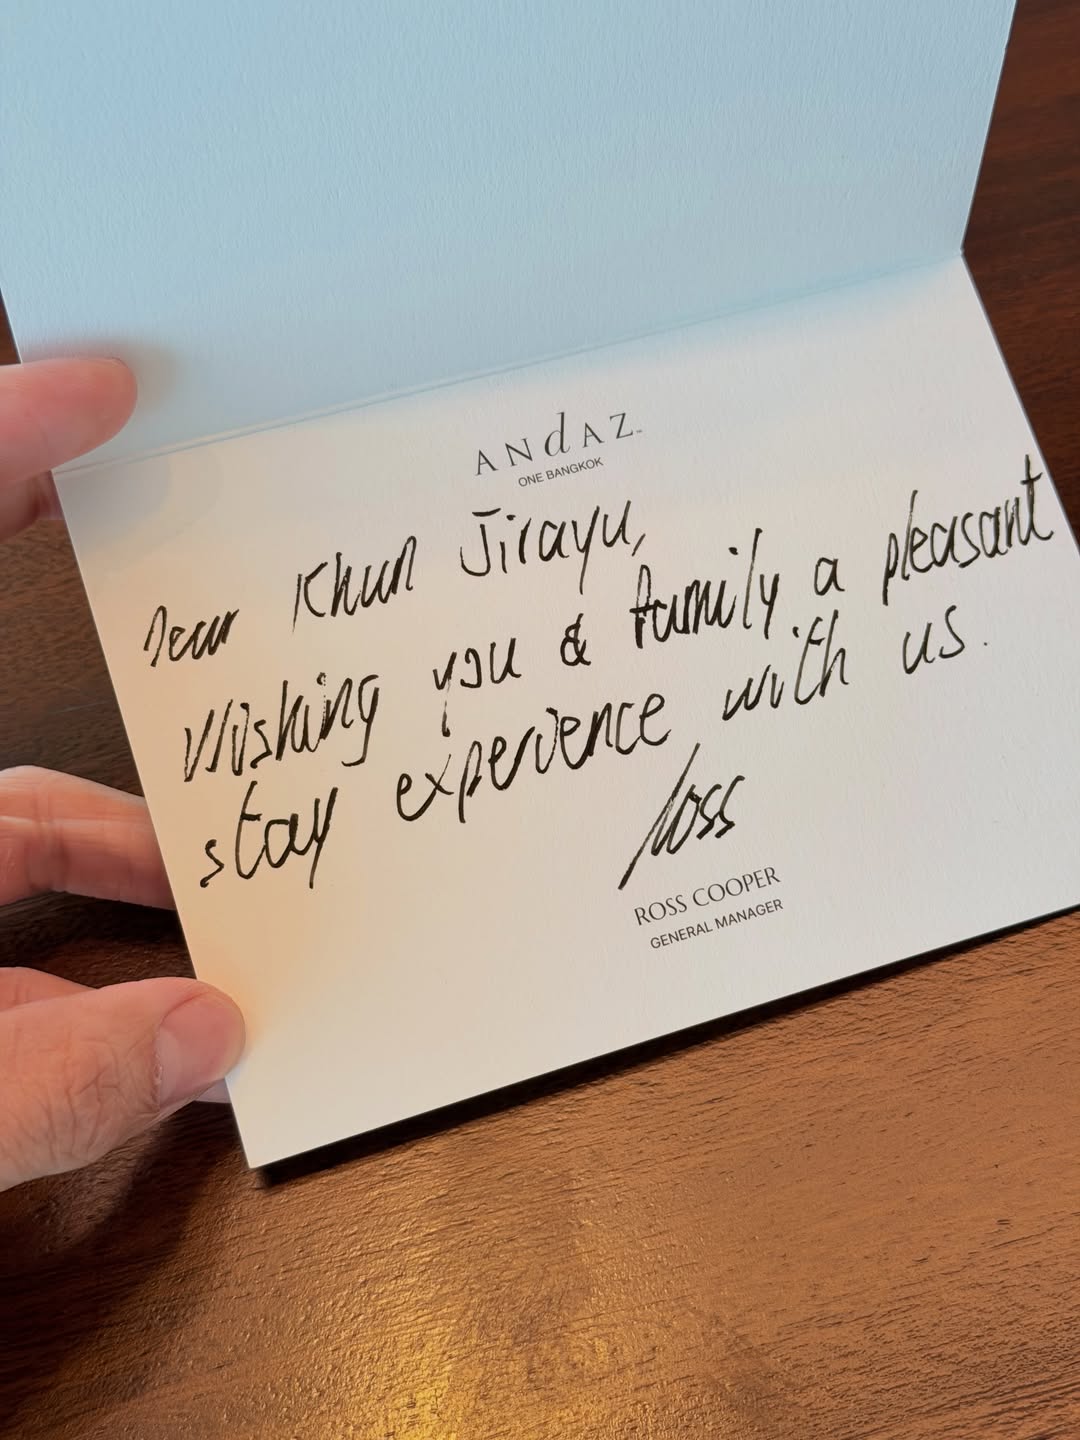 ANdAZ™
ONE BANGKOK
Dear Khun Jirayu,
Wishing you & family a pleasant
stay experience with us.
Ross
ROSS COOPER
GENERAL MANAGER